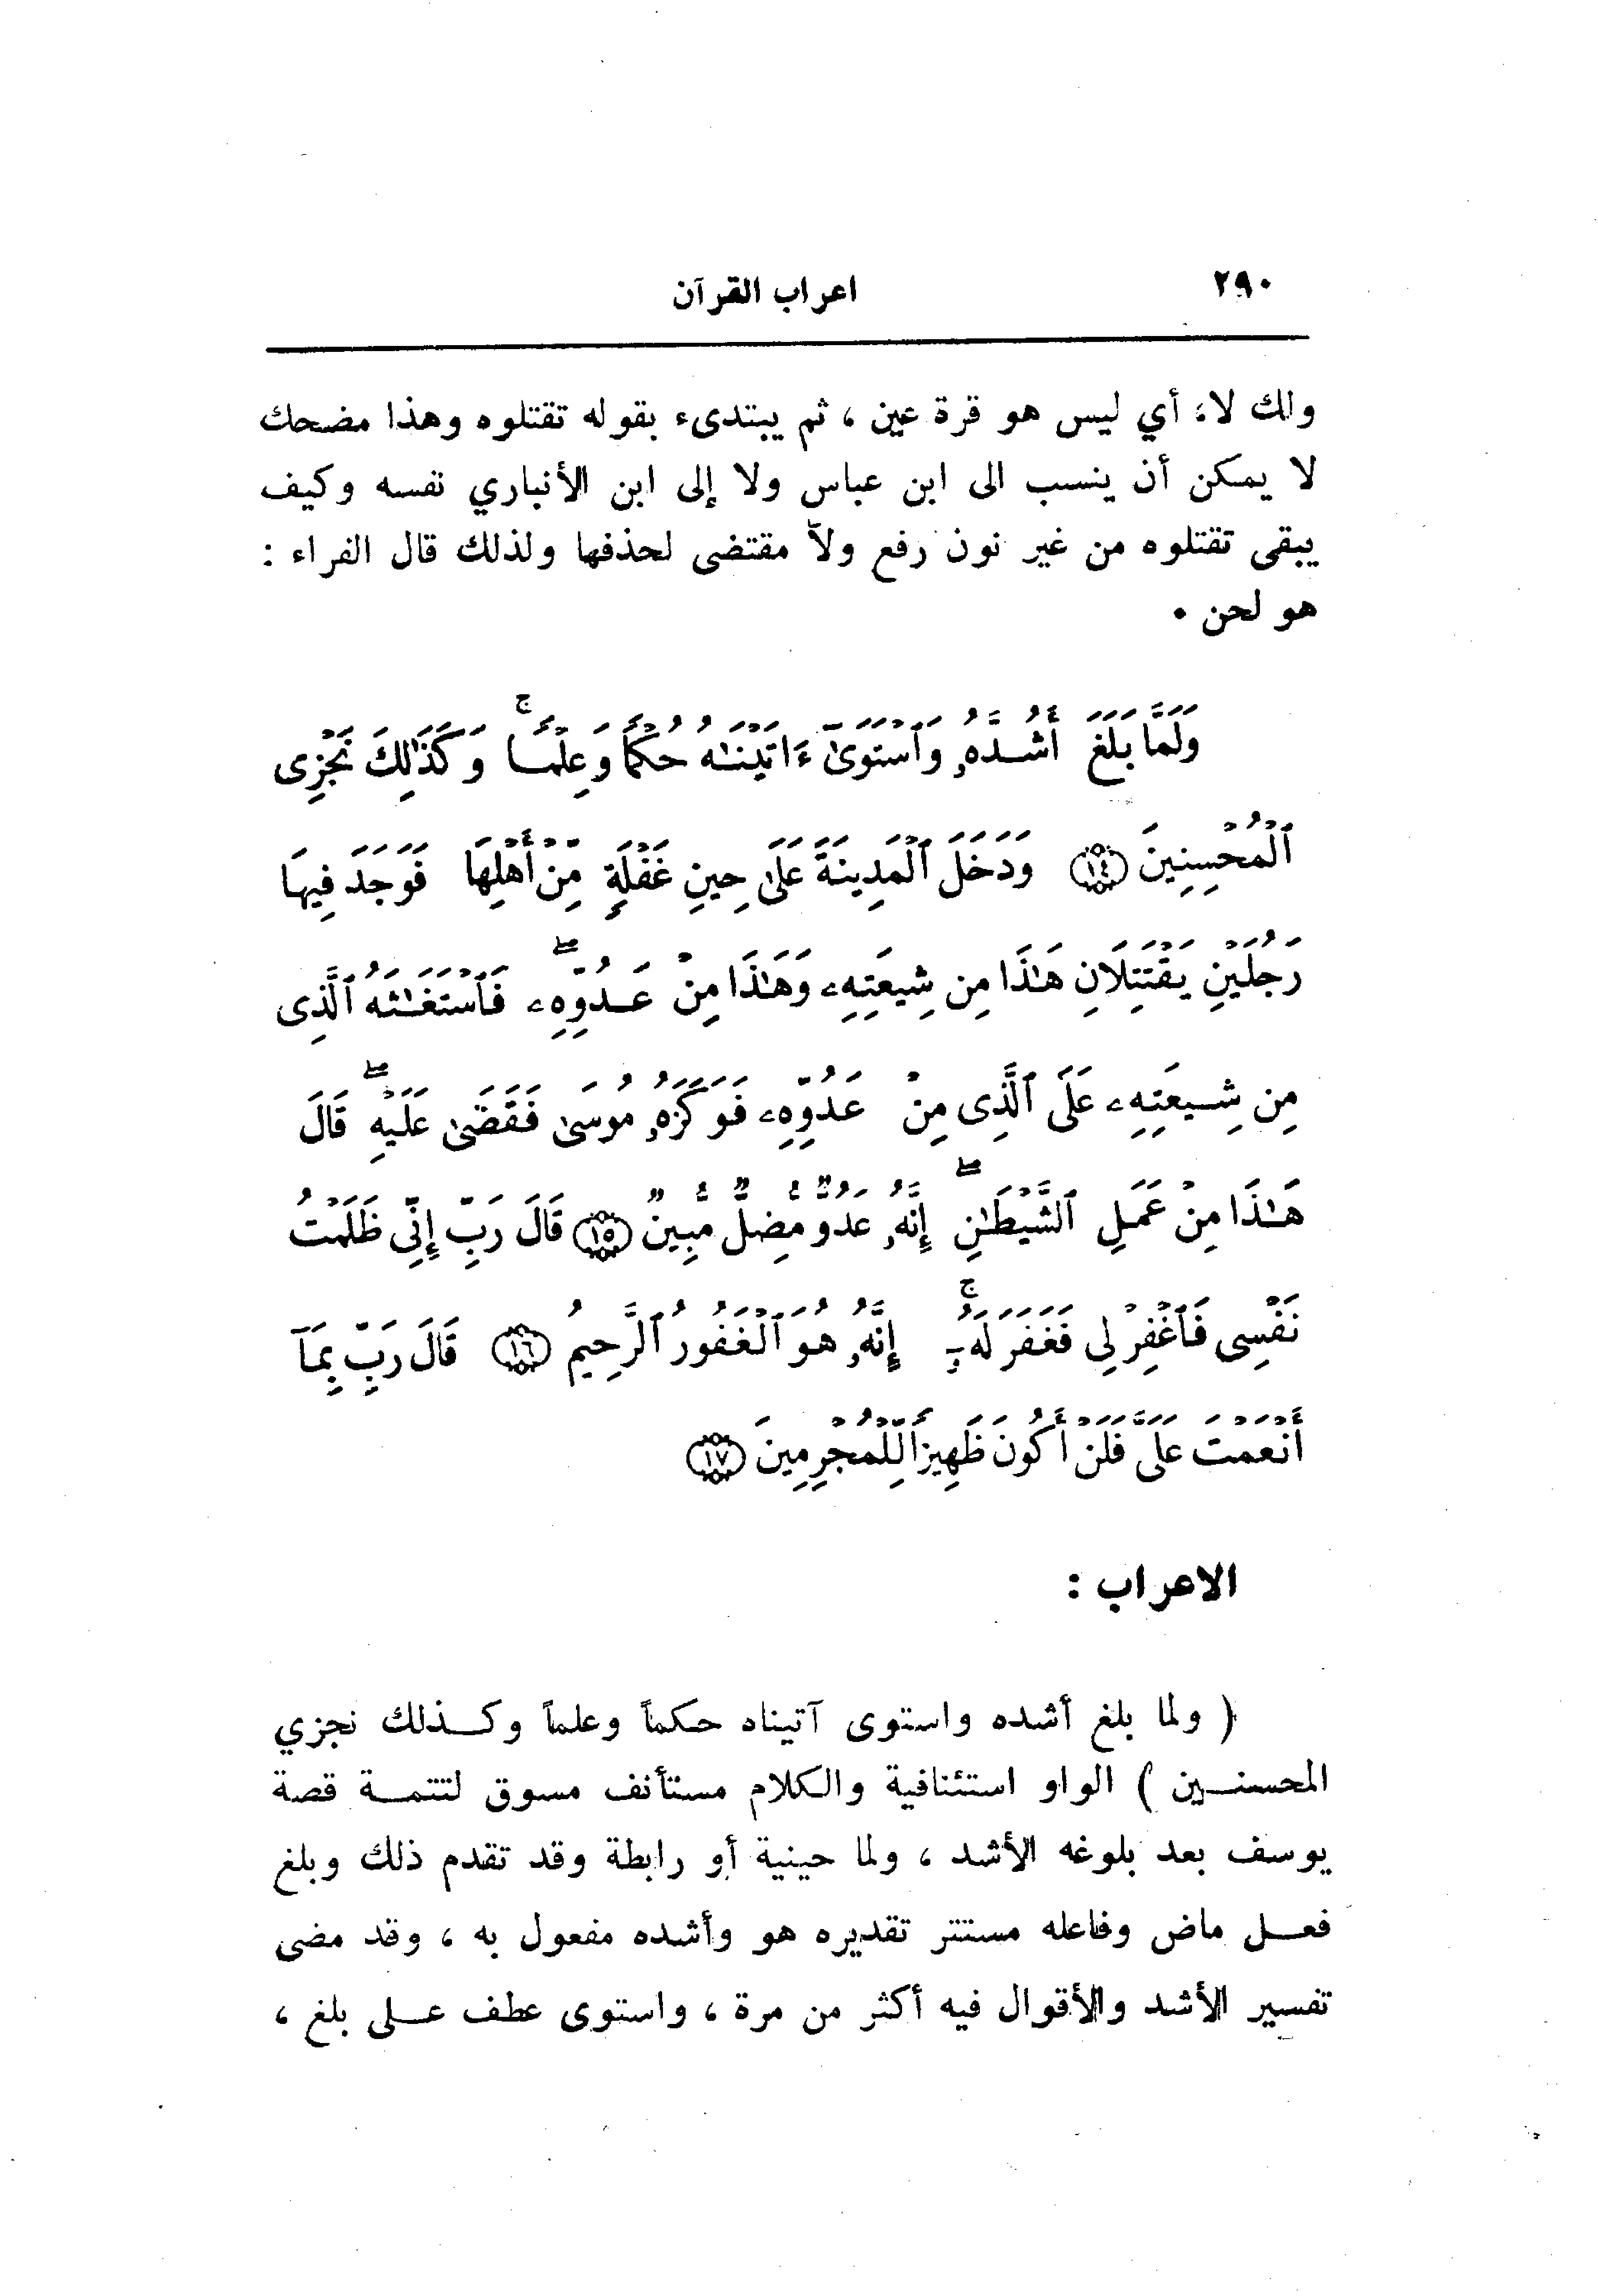 ٢٩٠
اعراب القرآن
ولك لا، أي ليس هو قرة عين ، ثم يبتدىء بقوله تقتلوه وهذا مضحك
لا يمكن أن ينسب الى ابن عباس ولا إلى ابن الأنباري نفسه وكيف
يبقى تقتلوه من غير نون رفع ولا مقتضى لحذفها ولذلك قال الفراء :
هو لحن ٠
وَلَمَّا بَلَغَ أَشُدَّهُۥ وَٱسْتَوَىٰٓ ءَاتَيْنَـٰهُ حُكْمًا وَعِلْمًا ۚ وَكَذَٰلِكَ نَجْزِى
ٱلْمُحْسِنِينَ ﴿١٤﴾ وَدَخَلَ ٱلْمَدِينَةَ عَلَىٰ حِينِ غَفْلَةٍ مِّنْ أَهْلِهَا فَوَجَدَ فِيهَا
رَجُلَيْنِ يَقْتَتِلَانِ هَـٰذَا مِن شِيعَتِهِۦ وَهَـٰذَا مِنْ عَدُوِّهِۦ ۖ فَٱسْتَغَـٰثَهُ ٱلَّذِى
مِن شِيعَتِهِۦ عَلَى ٱلَّذِى مِنْ عَدُوِّهِۦ فَوَكَزَهُۥ مُوسَىٰ فَقَضَىٰ عَلَيْهِ ۖ قَالَ
هَـٰذَا مِنْ عَمَلِ ٱلشَّيْطَـٰنِ ۖ إِنَّهُۥ عَدُوٌّ مُّضِلٌّ مُّبِينٌ ﴿١٥﴾ قَالَ رَبِّ إِنِّى ظَلَمْتُ
نَفْسِى فَٱغْفِرْ لِى فَغَفَرَ لَهُۥٓ ۚ إِنَّهُۥ هُوَ ٱلْغَفُورُ ٱلرَّحِيمُ ﴿١٦﴾ قَالَ رَبِّ بِمَآ
أَنْعَمْتَ عَلَىَّ فَلَنْ أَكُونَ ظَهِيرًا لِّلْمُجْرِمِينَ ﴿١٧﴾
الاعراب :
( ولما بلغ أشده واستوى آتيناه حكماً وعلماً وكذلك نجزي
المحسنين ) الواو استئنافية والكلام مستأنف مسوق لتتمة قصة
يوسف بعد بلوغه الأشد ، ولما حينية أو رابطة وقد تقدم ذلك وبلغ
فعل ماض وفاعله مستتر تقديره هو وأشده مفعول به ، وقد مضى
تفسير الأشد والأقوال فيه أكثر من مرة ، واستوى عطف على بلغ ،